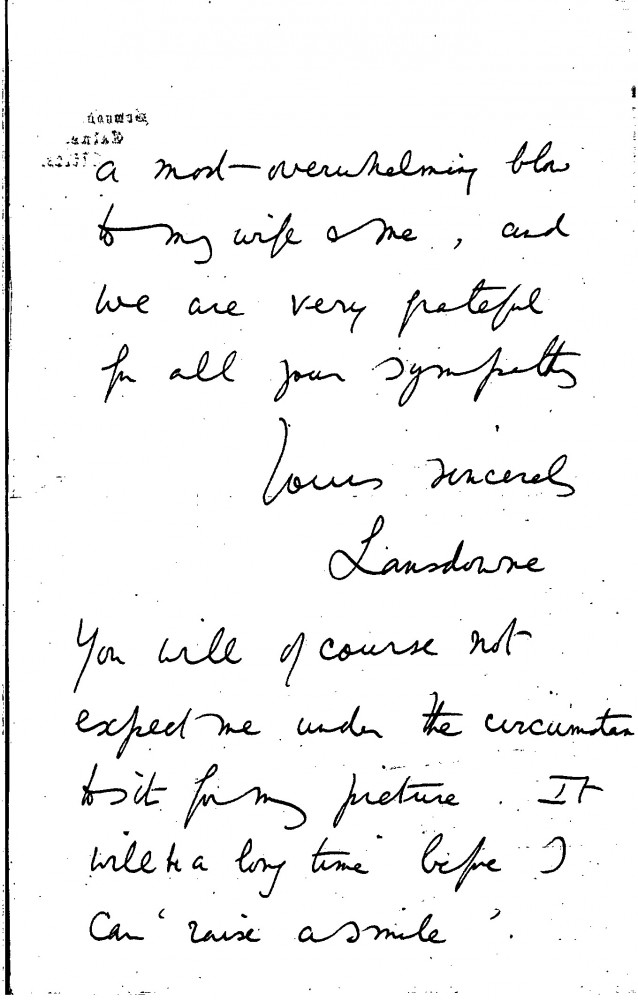 a most overwhelming blow
to my wife & me, and
we are very grateful
for all your sympathy
Yours sincerely
Lansdowne
You will of course not
expect me under the circumstan
to sit for my picture. It
will be a long time before I
can 'raise a smile'.